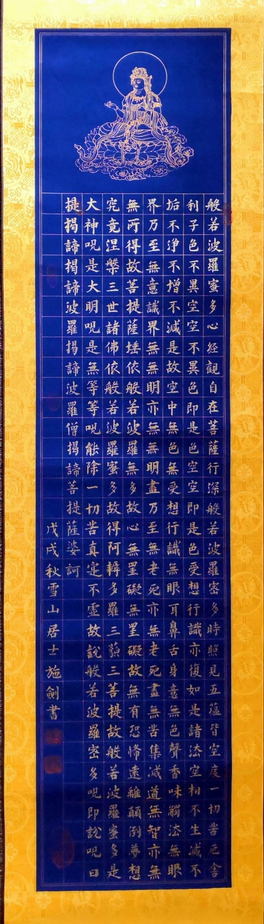 般若波羅蜜多心經觀自在菩薩行深般若波羅蜜多時照見五蘊皆空度一切苦厄舍
利子色不異空空不異色即是色空空即是色受想行識亦復如是諸法空相不生滅不
垢不淨不增不減是故空中無色無受想行識無眼耳鼻舌身意無色聲香味觸法無眼
界乃至無意識界無無明亦無無明盡乃至無老死亦無老死盡無苦集滅道無智亦無
無所得故菩提薩埵依般若波羅蜜多故心無罣礙無罣礙故無有恐怖遠離顛倒夢想
究竟涅槃三世諸佛依般若波羅蜜多故得阿耨多羅三藐三菩提故般若波羅蜜多是
大神呪是大明呪是無等等呪能除一切苦真實不虛故說般若波羅蜜多呪即說呪曰
揭諦揭諦波羅揭諦波羅僧揭諦菩提薩婆訶
戊戌秋雪山居士施劍書